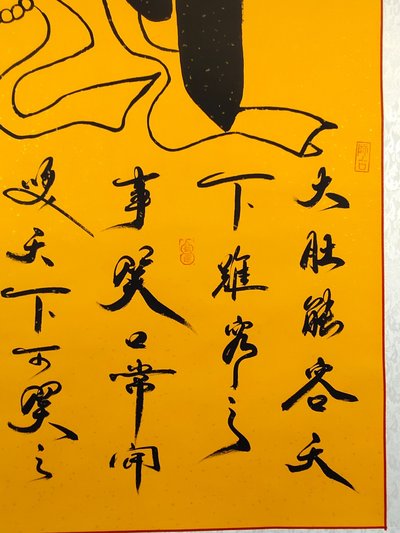 大肚能容天
下難容之
事笑口常開
笑天下可笑之